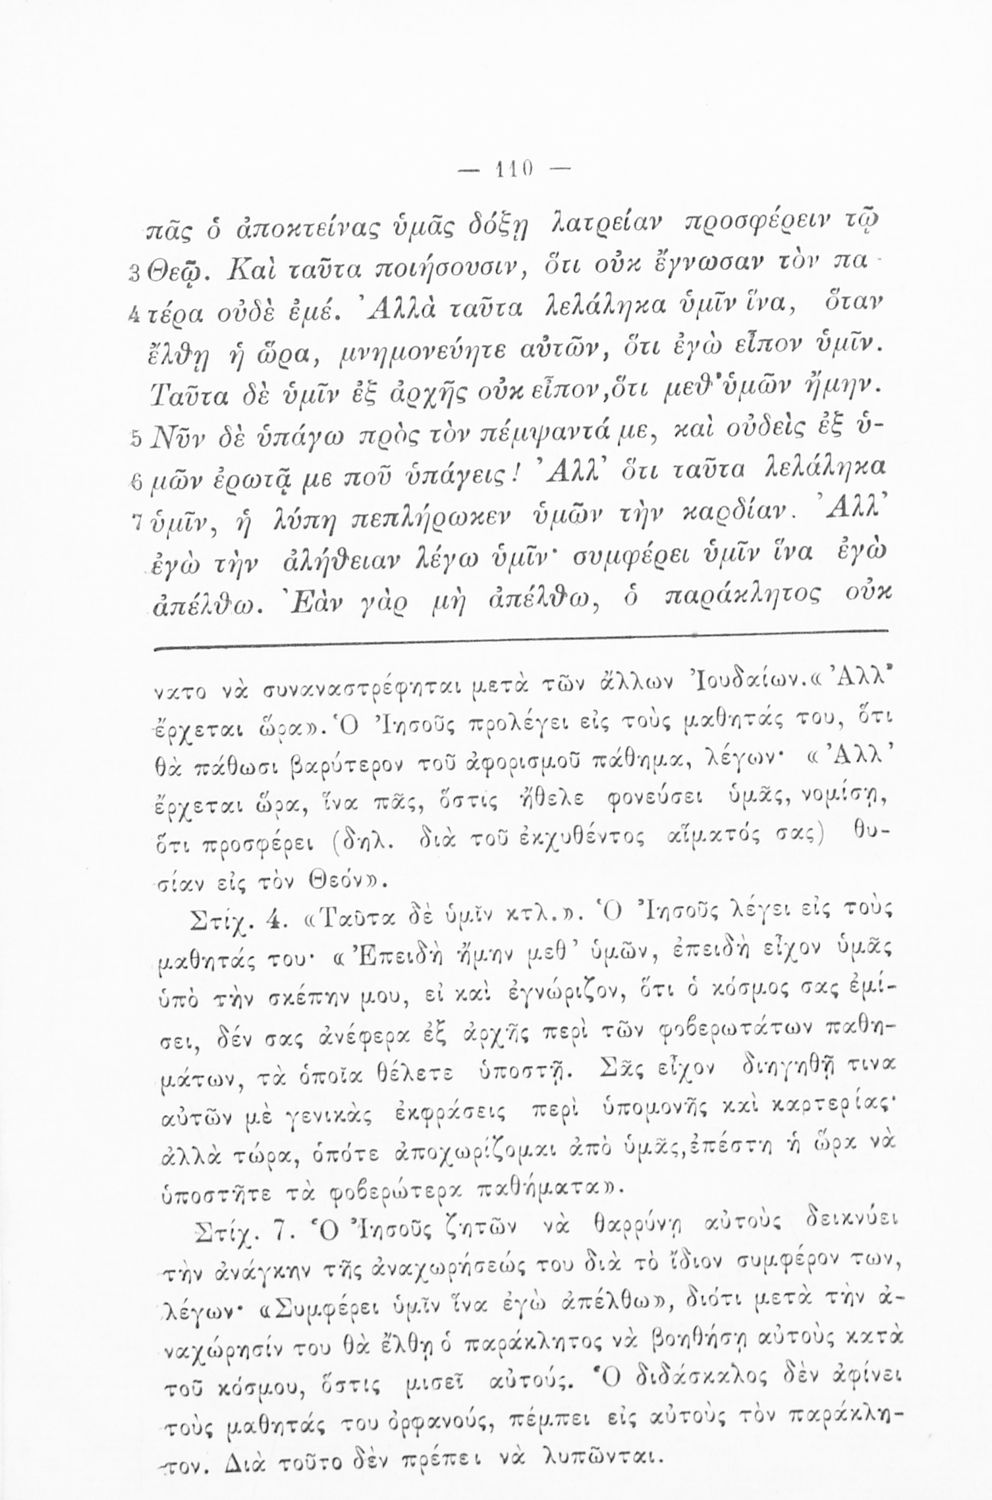 — 110 —
πᾶς ὁ ἀποκτείνας ὑμᾶς δόξῃ λατρείαν προσφέρειν τῷ
3 Θεῷ. Καὶ ταῦτα ποιήσουσιν, ὅτι οὐκ ἔγνωσαν τὸν πα-
4 τέρα οὐδὲ ἐμέ. Ἀλλὰ ταῦτα λελάληκα ὑμῖν ἵνα, ὅταν
ἔλθῃ ἡ ὥρα, μνημονεύητε αὐτῶν, ὅτι ἐγὼ εἶπον ὑμῖν.
Ταῦτα δὲ ὑμῖν ἐξ ἀρχῆς οὐκ εἶπον, ὅτι μεθ' ὑμῶν ἤμην.
5 Νῦν δὲ ὑπάγω πρὸς τὸν πέμψαντά με, καὶ οὐδεὶς ἐξ ὑ-
6 μῶν ἐρωτᾷ με ποῦ ὑπάγεις! Ἀλλ' ὅτι ταῦτα λελάληκα
7 ὑμῖν, ἡ λύπη πεπλήρωκεν ὑμῶν τὴν καρδίαν. Ἀλλ'
ἐγὼ τὴν ἀλήθειαν λέγω ὑμῖν· συμφέρει ὑμῖν ἵνα ἐγὼ
ἀπέλθω. Ἐὰν γὰρ μὴ ἀπέλθω, ὁ παράκλητος οὐκ
νατο νὰ συναναστρέφηται μετὰ τῶν ἄλλων Ἰουδαίων. «Ἀλλ'
ἔρχεται ὥρα». Ὁ Ἰησοῦς προλέγει εἰς τοὺς μαθητάς του, ὅτι
θὰ πάθωσι βαρύτερον τοῦ ἀφορισμοῦ πάθημα, λέγων· «Ἀλλ'
ἔρχεται ὥρα, ἵνα πᾶς, ὅστις ἤθελε φονεύσει ὑμᾶς, νομίσῃ,
ὅτι προσφέρει (δηλ. διὰ τοῦ ἐκχυθέντος αἵματός σας) θυ-
σίαν εἰς τὸν Θεόν».
Στίχ. 4. «Ταῦτα δὲ ὑμῖν κτλ.». Ὁ Ἰησοῦς λέγει εἰς τοὺς
μαθητάς του· «Ἐπειδὴ ἤμην μεθ' ὑμῶν, ἐπειδὴ εἶχον ὑμᾶς
ὑπὸ τὴν σκέπην μου, εἰ καὶ ἐγνώριζον, ὅτι ὁ κόσμος σας ἐμί-
σει, δέν σας ἀνέφερα ἐξ ἀρχῆς περὶ τῶν φοβερωτάτων παθη-
μάτων, τὰ ὁποῖα θέλετε ὑποστῇ. Σᾶς εἶχον διηγηθῇ τινα
αὐτῶν μὲ γενικὰς ἐκφράσεις περὶ ὑπομονῆς καὶ καρτερίας·
ἀλλὰ τώρα, ὁπότε ἀποχωρίζομαι ἀπὸ ὑμᾶς, ἐπέστη ἡ ὥρα νὰ
ὑποστῆτε τὰ φοβερώτερα παθήματα».
Στίχ. 7. Ὁ Ἰησοῦς ζητῶν νὰ θαρρύνῃ αὐτοὺς δεικνύει
τὴν ἀνάγκην τῆς ἀναχωρήσεώς του διὰ τὸ ἴδιον συμφέρον των,
λέγων· «Συμφέρει ὑμῖν ἵνα ἐγὼ ἀπέλθω», διότι μετὰ τὴν ἀ-
ναχώρησίν του θὰ ἔλθῃ ὁ παράκλητος νὰ βοηθήσῃ αὐτοὺς κατὰ
τοῦ κόσμου, ὅστις μισεῖ αὐτούς. Ὁ διδάσκαλος δὲν ἀφίνει
τοὺς μαθητάς του ὀρφανούς, πέμπει εἰς αὐτοὺς τὸν παράκλη-
τον. Διὰ τοῦτο δὲν πρέπει νὰ λυπῶνται.